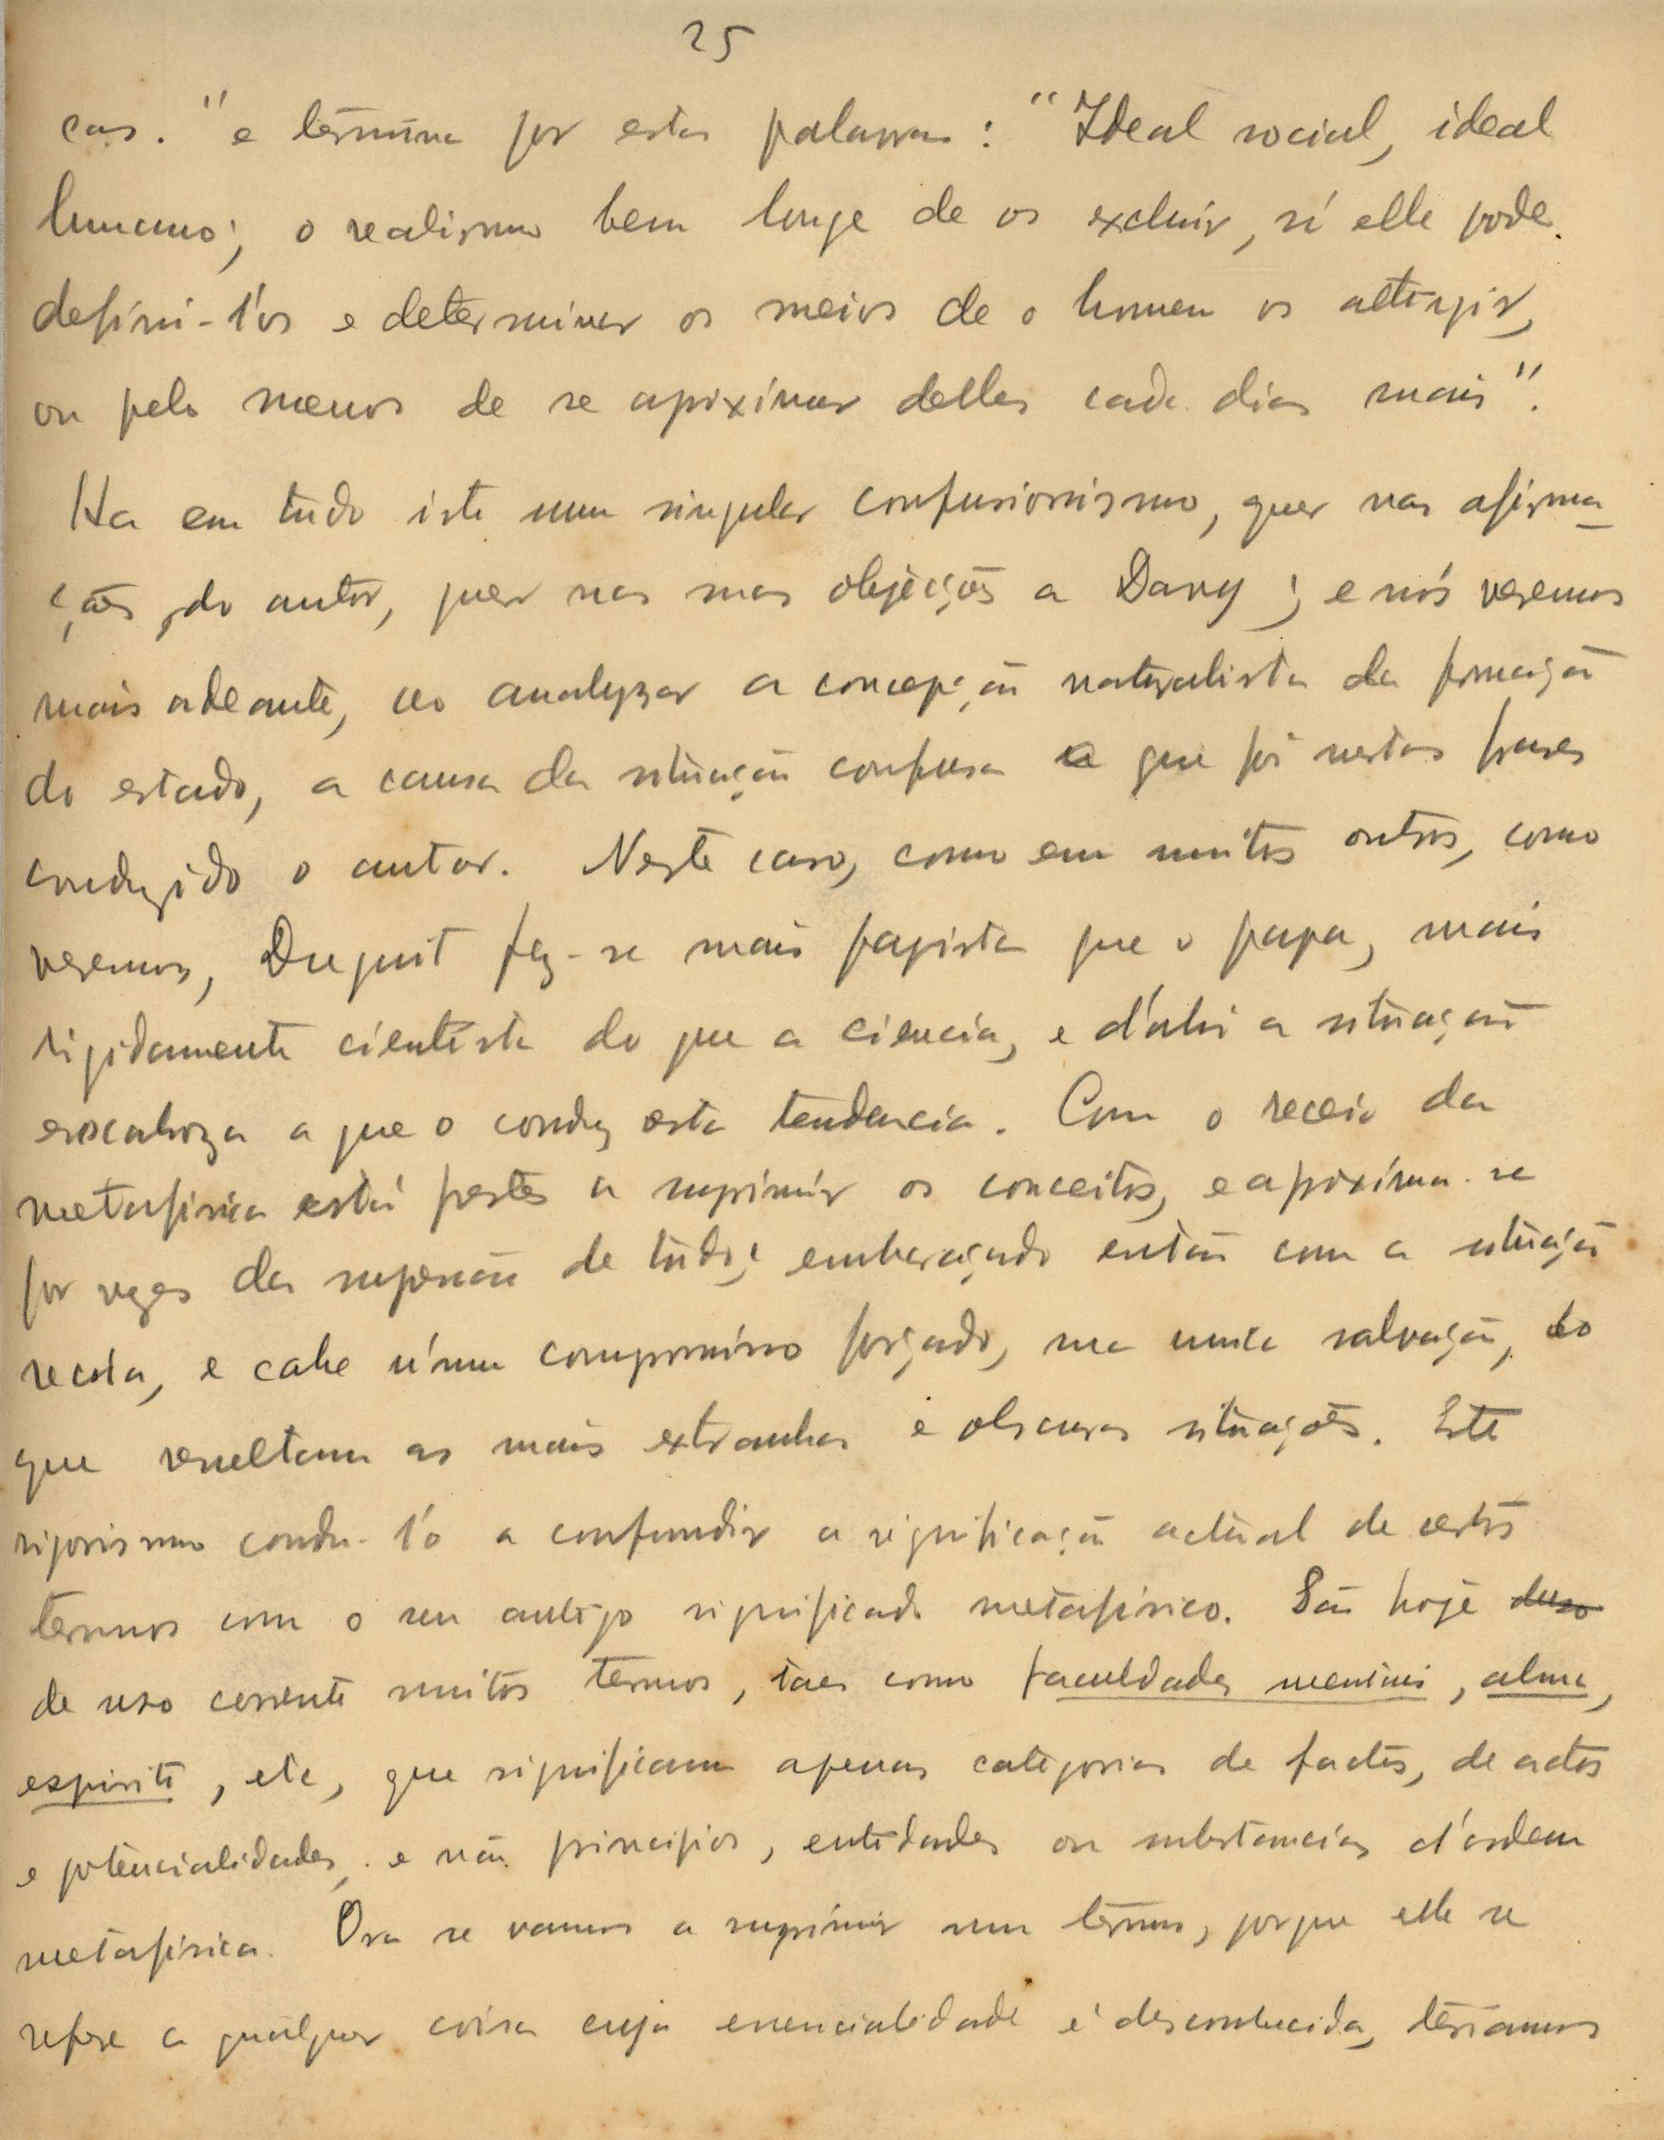 25
cas." e termina por estas palavras: "Ideal social, ideal
humano; o realismo bem longe de os excluir, si elle pode
defini-l'os e determinar os meios de o homem os attingir,
ou pelo menos de se aproximar delles cada dia mais".
Ha em tudo isto um singular confusionismo, quer nas afirma-
ções do autor, quer nas suas objeições a Davy; e nós veremos
mais adeante, ao analyzar a concepção naturalista da formação
do estado, a causa da situação confusa a que foi nestas frases
conduzido o autor. Neste caso, como em muitos outros, como
veremos, Duguit fez-se mais papista que o papa, mais
rigidamente cientista do que a ciencia, e d'ahi a situação
a que o conduz esta tendencia. Com o receio da
metafisica está prestes a suprimir os conceitos, e aproxima-se
por vezes da supressão de tudo; embaraçado então com a situação
recúa, e cahe n'um compromisso forçado, na unica salvação, do
que resultam as mais extranhas e obscuras situações. Este
rigorismo condu-l'o a confundir a significação actual de certos
termos com o seu antigo significado metafisico. São hoje
de uso corrente muitos termos, taes como faculdades mentais, alma,
espirito, etc, que significam apenas categorias de factos, de actos
e potencialidades, e não principios, entidades ou substancias d'ordem
metafisica. Ora se vamos a suprimir um termo, porque elle se
refere a qualquer coisa cuja essencialidade é desconhecida, teriamos